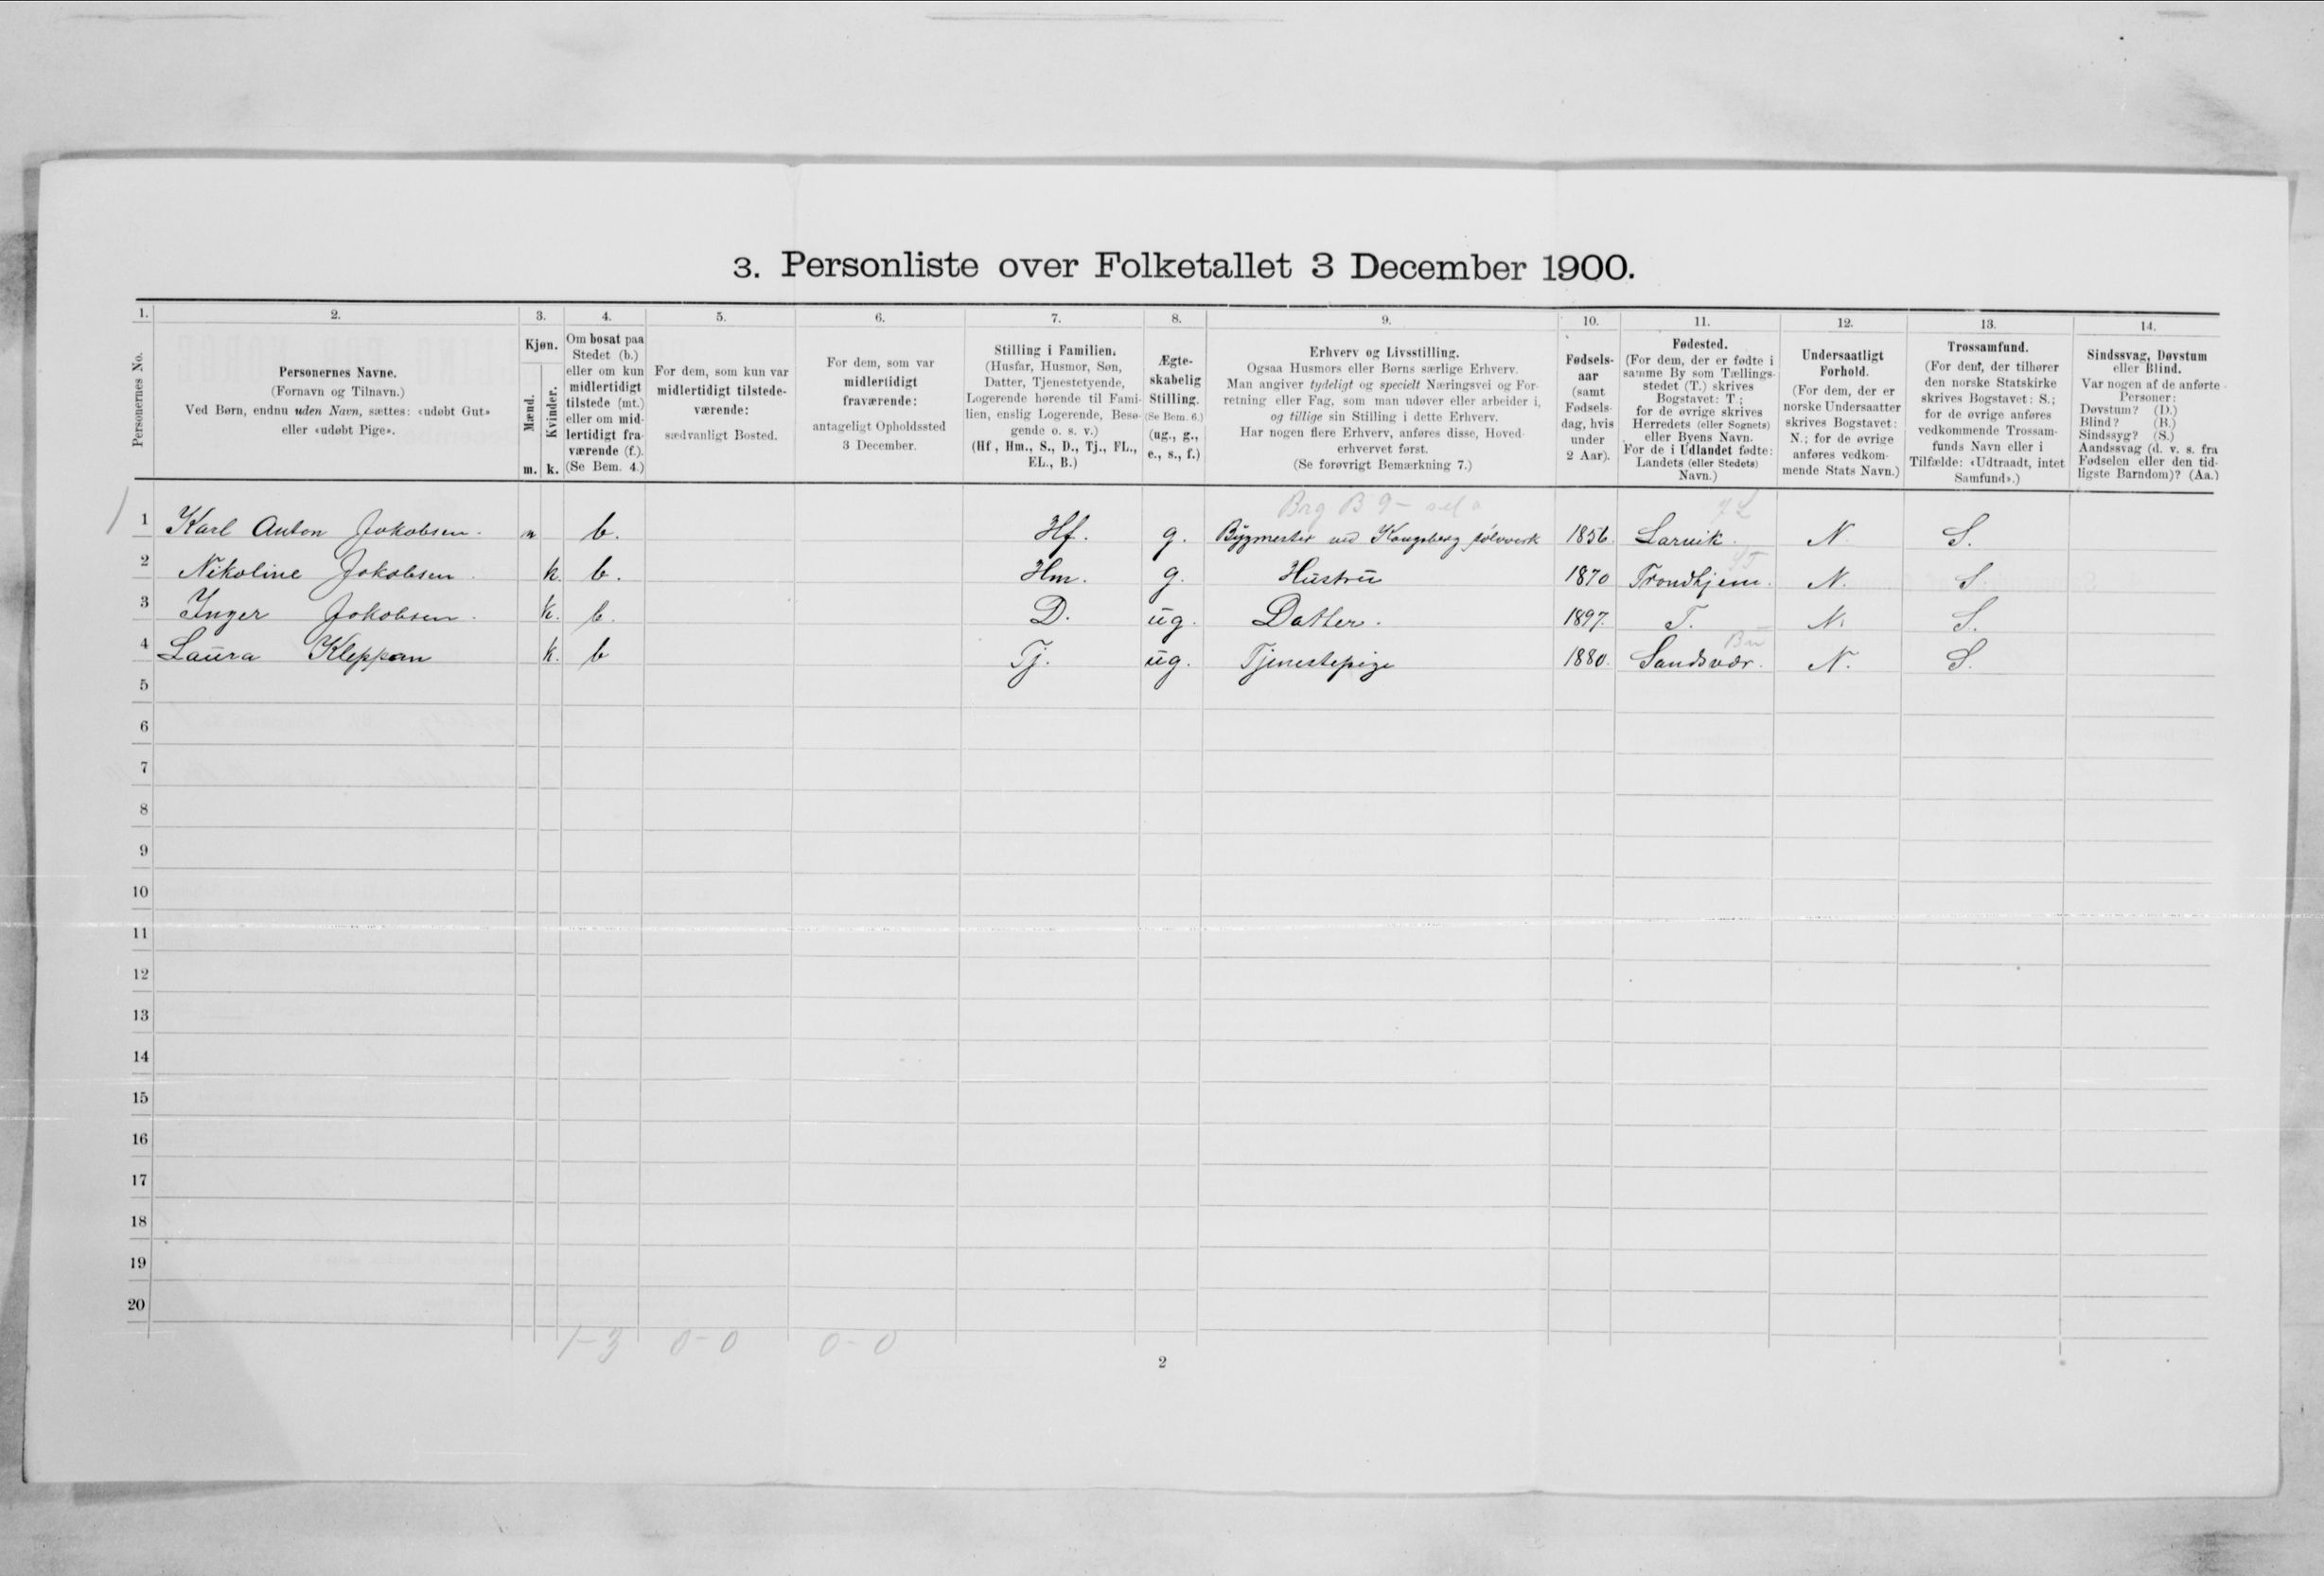 3. Personliste over Folketallet 3 December 1900.
1. 2. 3. 4. 5. 6. 7. 8. 9. 10. 11. 12. 13. 14.
Personernes No.
Personernes Navne.
(Fornavn og Tilnavn.)
Ved Børn, endnu uden Navn, sættes: «udøbt Gut»
eller «udøbt Pige».
Kjøn.
Mænd.
Kvinder.
m. k.
Om bosat paa
Stedet (b.)
eller om kun
midlertidigt
tilstede (mt.)
eller om mid-
lertidigt fra-
værende (f.).
(Se Bem. 4.)
For dem, som kun var
midlertidigt tilstede-
værende:
sædvanligt Bosted.
For dem, som var
midlertidigt
fraværende:
antageligt Opholdssted
3 December.
Stilling i Familien.
(Husfar, Husmor, Søn,
Datter, Tjenestetyende,
Logerende hørende til Fami-
lien, enslig Logerende, Besø-
gende o. s. v.)
(Hf, Hm., S., D., Tj., FL.,
EL., B.)
Ægte-
skabelig
Stilling.
(Se Bem. 6.)
(ug., g.,
e., s., f.)
Erhverv og Livsstilling.
Ogsaa Husmors eller Børns særlige Erhverv.
Man angiver tydeligt og specielt Næringsvei og For-
retning eller Fag, som man udøver eller arbeider i,
og tillige sin Stilling i dette Erhverv.
Har nogen flere Erhverv, anføres disse, Hoved-
erhvervet først.
(Se forøvrigt Bemærkning 7.)
Fødsels-
aar
(samt
Fødsels-
dag, hvis
under
2 Aar).
Fødested.
(For dem, der er fødte i
samme By som Tællings-
stedet (T.) skrives
Bogstavet: T.;
for de øvrige skrives
Herredets (eller Sognets)
eller Byens Navn.
For de i Udlandet fødte:
Landets (eller Stedets)
Navn.)
Undersaatligt
Forhold.
(For dem, der er
norske Undersaatter
skrives Bogstavet:
N.; for de øvrige
anføres vedkom-
mende Stats Navn.)
Trossamfund.
(For dem, der tilhører
den norske Statskirke
skrives Bogstavet: S.;
for de øvrige anføres
vedkommende Trossam-
funds Navn eller i
Tilfælde: «Udtraadt, intet
Samfund».)
Sindssvag, Døvstum
eller Blind.
Var nogen af de anførte
Personer:
Døvstum? (D.)
Blind? (B.)
Sindssyg? (S.)
Aandssvag (d. v. s. fra
Fødselen eller den tid-
ligste Barndom)? (Aa.)
Brg B 9
1 Karl Anton Jokobsen. m b. Hf. g. Bygmester ved Kongsberg sølvverk 1856 Larvik. N S.
2 Nikoline Jokobsen. k. b. Hm. g. Hustru 1870 Trondhjem. N. S.
3 Inger Jokobsen. k. b. D. ug. Datter. 1897. T. N. S.
Bu
4 Laura Kleppan k. b Tj. ug. Tjenestepige 1880. Sandsvær. N. S.
5
6
7
8
9
10
11
12
13
14
15
16
17
18
19
20
1-3 0-0 0-0
2